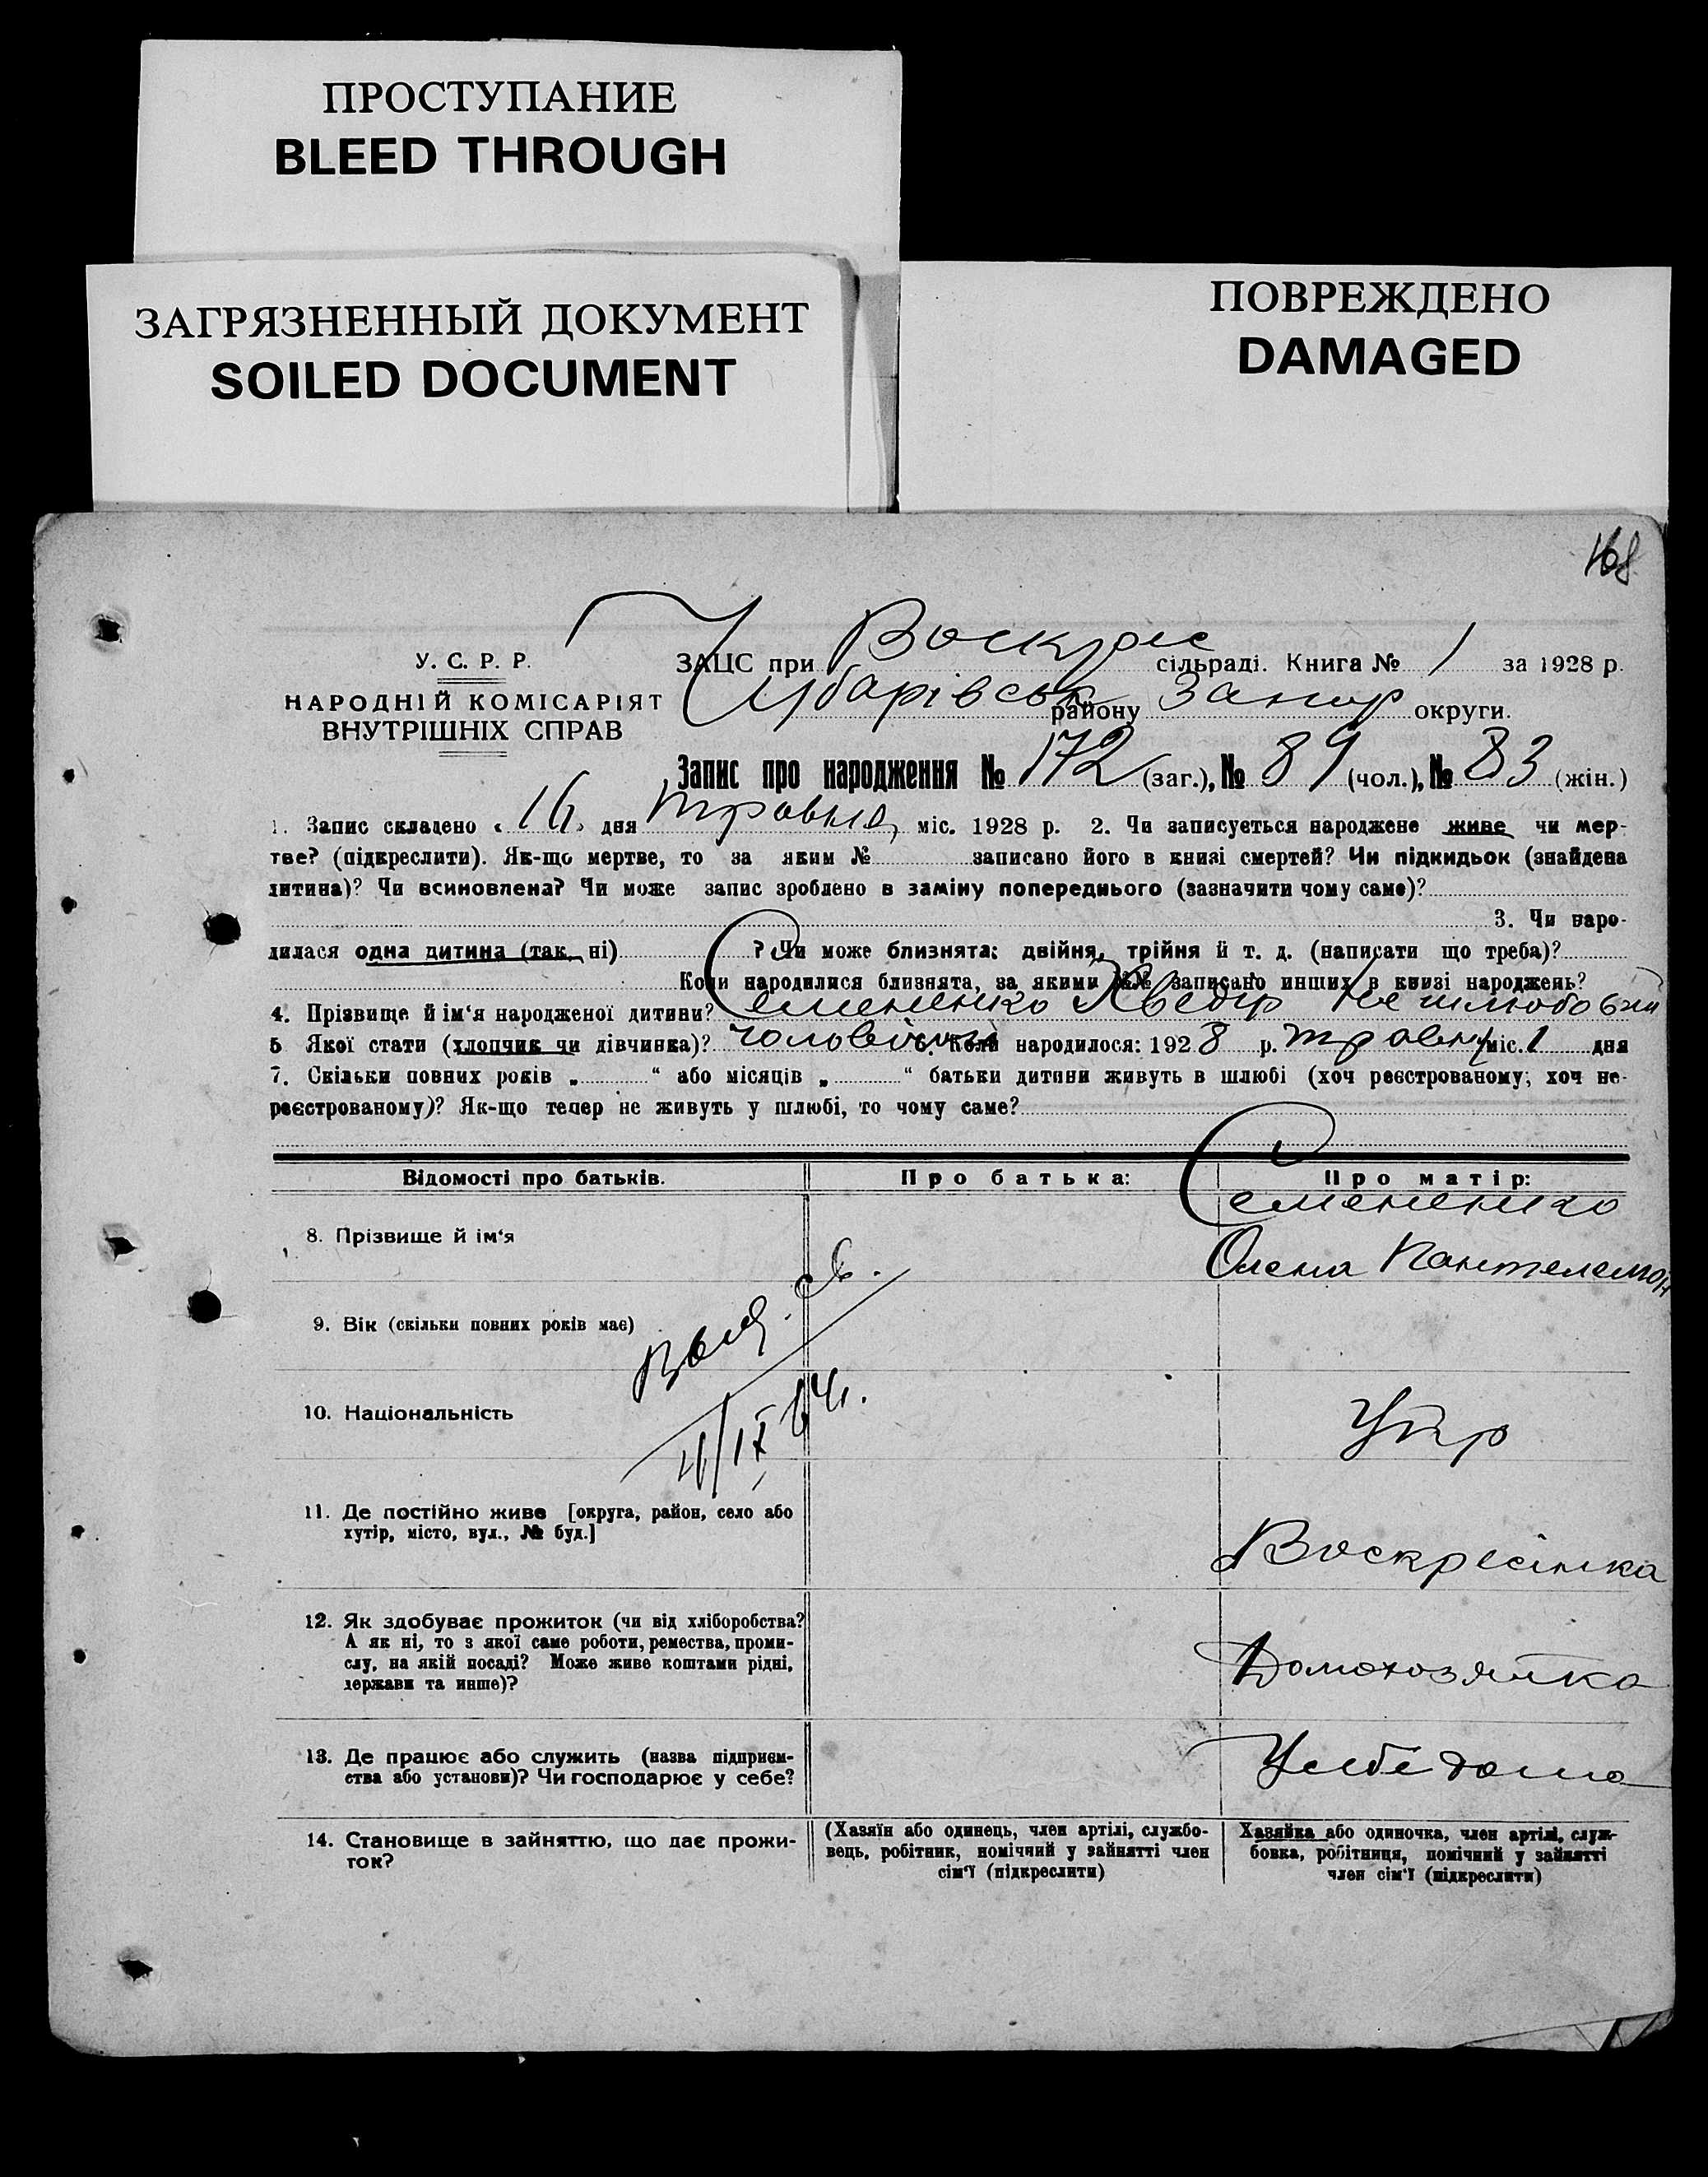 ПРОСТУПАНИЕ
BLEED THROUGH
ЗАГРЯЗНЕННЫЙ ДОКУМЕНТ
SOILED DOCUMENT
ПОВРЕЖДЕНО
DAMAGED
168
У. С. Р. Р.
НАРОДНІЙ КОМІСАРІЯТ
ВНУТРІШНІХ СПРАВ
ЗАЦС при Воскрес сільраді. Книга № 1 за 1928 р.
Чубарівськ району Запор округи.
Запис про народження № 172 (заг.), № 89 (чол.), № 83 (жін.)
1. Запис складено « 16 » дня травня міс. 1928 р. 2. Чи записується народжене живе чи мер-
тве? (підкреслити). Як-що мертве, то за яким № записано його в книзі смертей? Чи підкидьок (знайдена
дитина)? Чи всиновлена? Чи може запис зроблено в заміну попереднього (зазначити чому саме)?
3. Чи наро-
дилася одна дитина (так, ні) ? Чи може близнята: двійня, трійня й т. д. (написати що треба)?
Коли народилися близнята, за якими №№ записано инших в книзі народжень?
4. Прізвище й ім‘я народженої дитини? Семененко Хведір Не шлюбовий
5 Якої стати (хлопчик чи дівчинка)? 6. Коли народилося: 1928 р. травня міс. 1 дня
7. Скільки повних років „ “ або місяців „ “ батьки дитини живуть в шлюбі (хоч реєстрованому, хоч не-
реєстрованому)? Як-що тепер не живуть у шлюбі, то чому саме?
Відомості про батьків.
Про батька:
Про матір:
8. Прізвище й ім‘я
Семененко
Олена Пантелемон
9. Вік (скільки повних років має)
10. Національність
Укр
11. Де постійно живе [округа, район, село або
хутір, місто, вул., № буд.]
Воскресінка
12. Як здобуває прожиток (чи від хліборобства?
А як ні, то з якої саме роботи, ремества, проми-
слу, на якій посаді? Може живе коштами рідні,
держави та инше)?
Домохозяйка
13. Де працює або служить (назва підприєм-
ства або установи)? Чи господарює у себе?
У себе дома
14. Становище в зайняттю, що дає прожи-
ток?
(Хазяїн або одинець, член артілі, службо-
вець, робітник, помічний у зайнятті член
сім‘ї (підкреслити)
Хазяйка або одиночка, член артілі, служ-
бовка, робітниця, помічний у зайнятті
член сім‘ї (підкреслити)